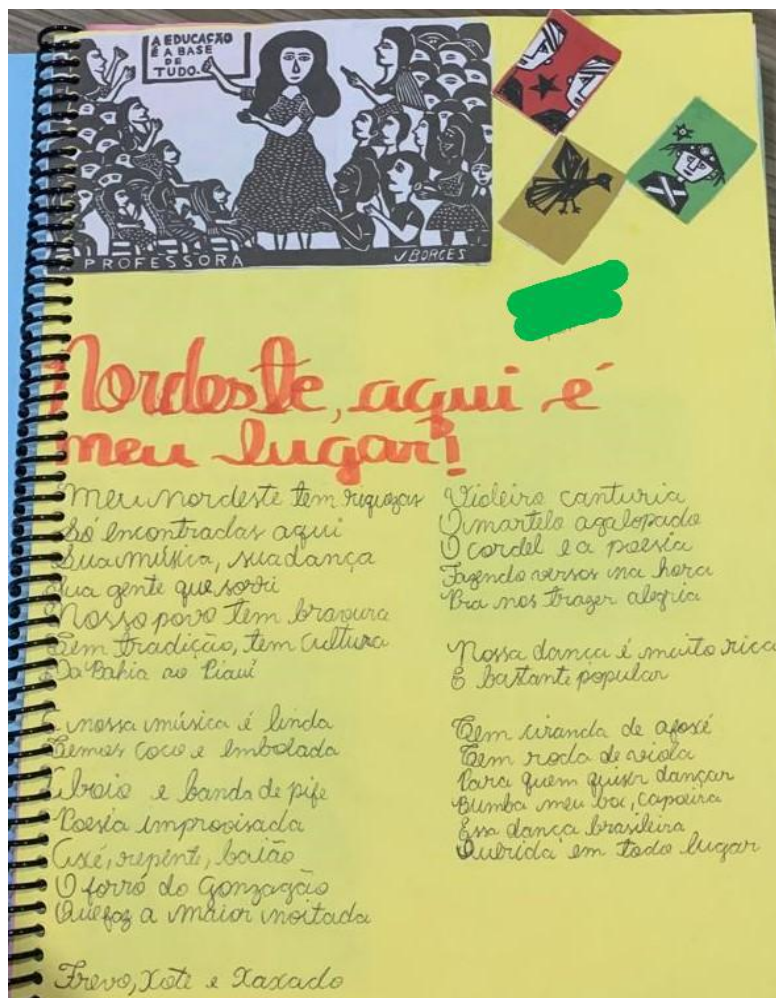 A EDUCAÇÃO
É A BASE
DE
TUDO.
PROFESSORA
J BORGES
Nordeste, aqui é
meu lugar!
Meu nordeste tem riquezas
Só encontradas aqui
Sua música, sua dança
Sua gente que sorri
Nosso povo tem bravura
Tem tradição, tem cultura
Da Bahia ao Piauí
E nossa música é linda
Temos coco e embolada
e banda de pife
Poesia improvisada
Axé, repente, baião
O forró do Gonzagão
Que faz a maior noitada
Frevo, Xote e Xaxado
Violeiro canturia
O martelo agalopado
O cordel e a poesia
Fazendo versos na hora
Pra nos trazer alegria
Nossa dança é muito rica
E bastante popular
Tem ciranda de afoxé
Tem roda de viola
Para quem quiser dançar
Bumba meu boi, capoeira
Essa dança brasileira
Querida em todo lugar